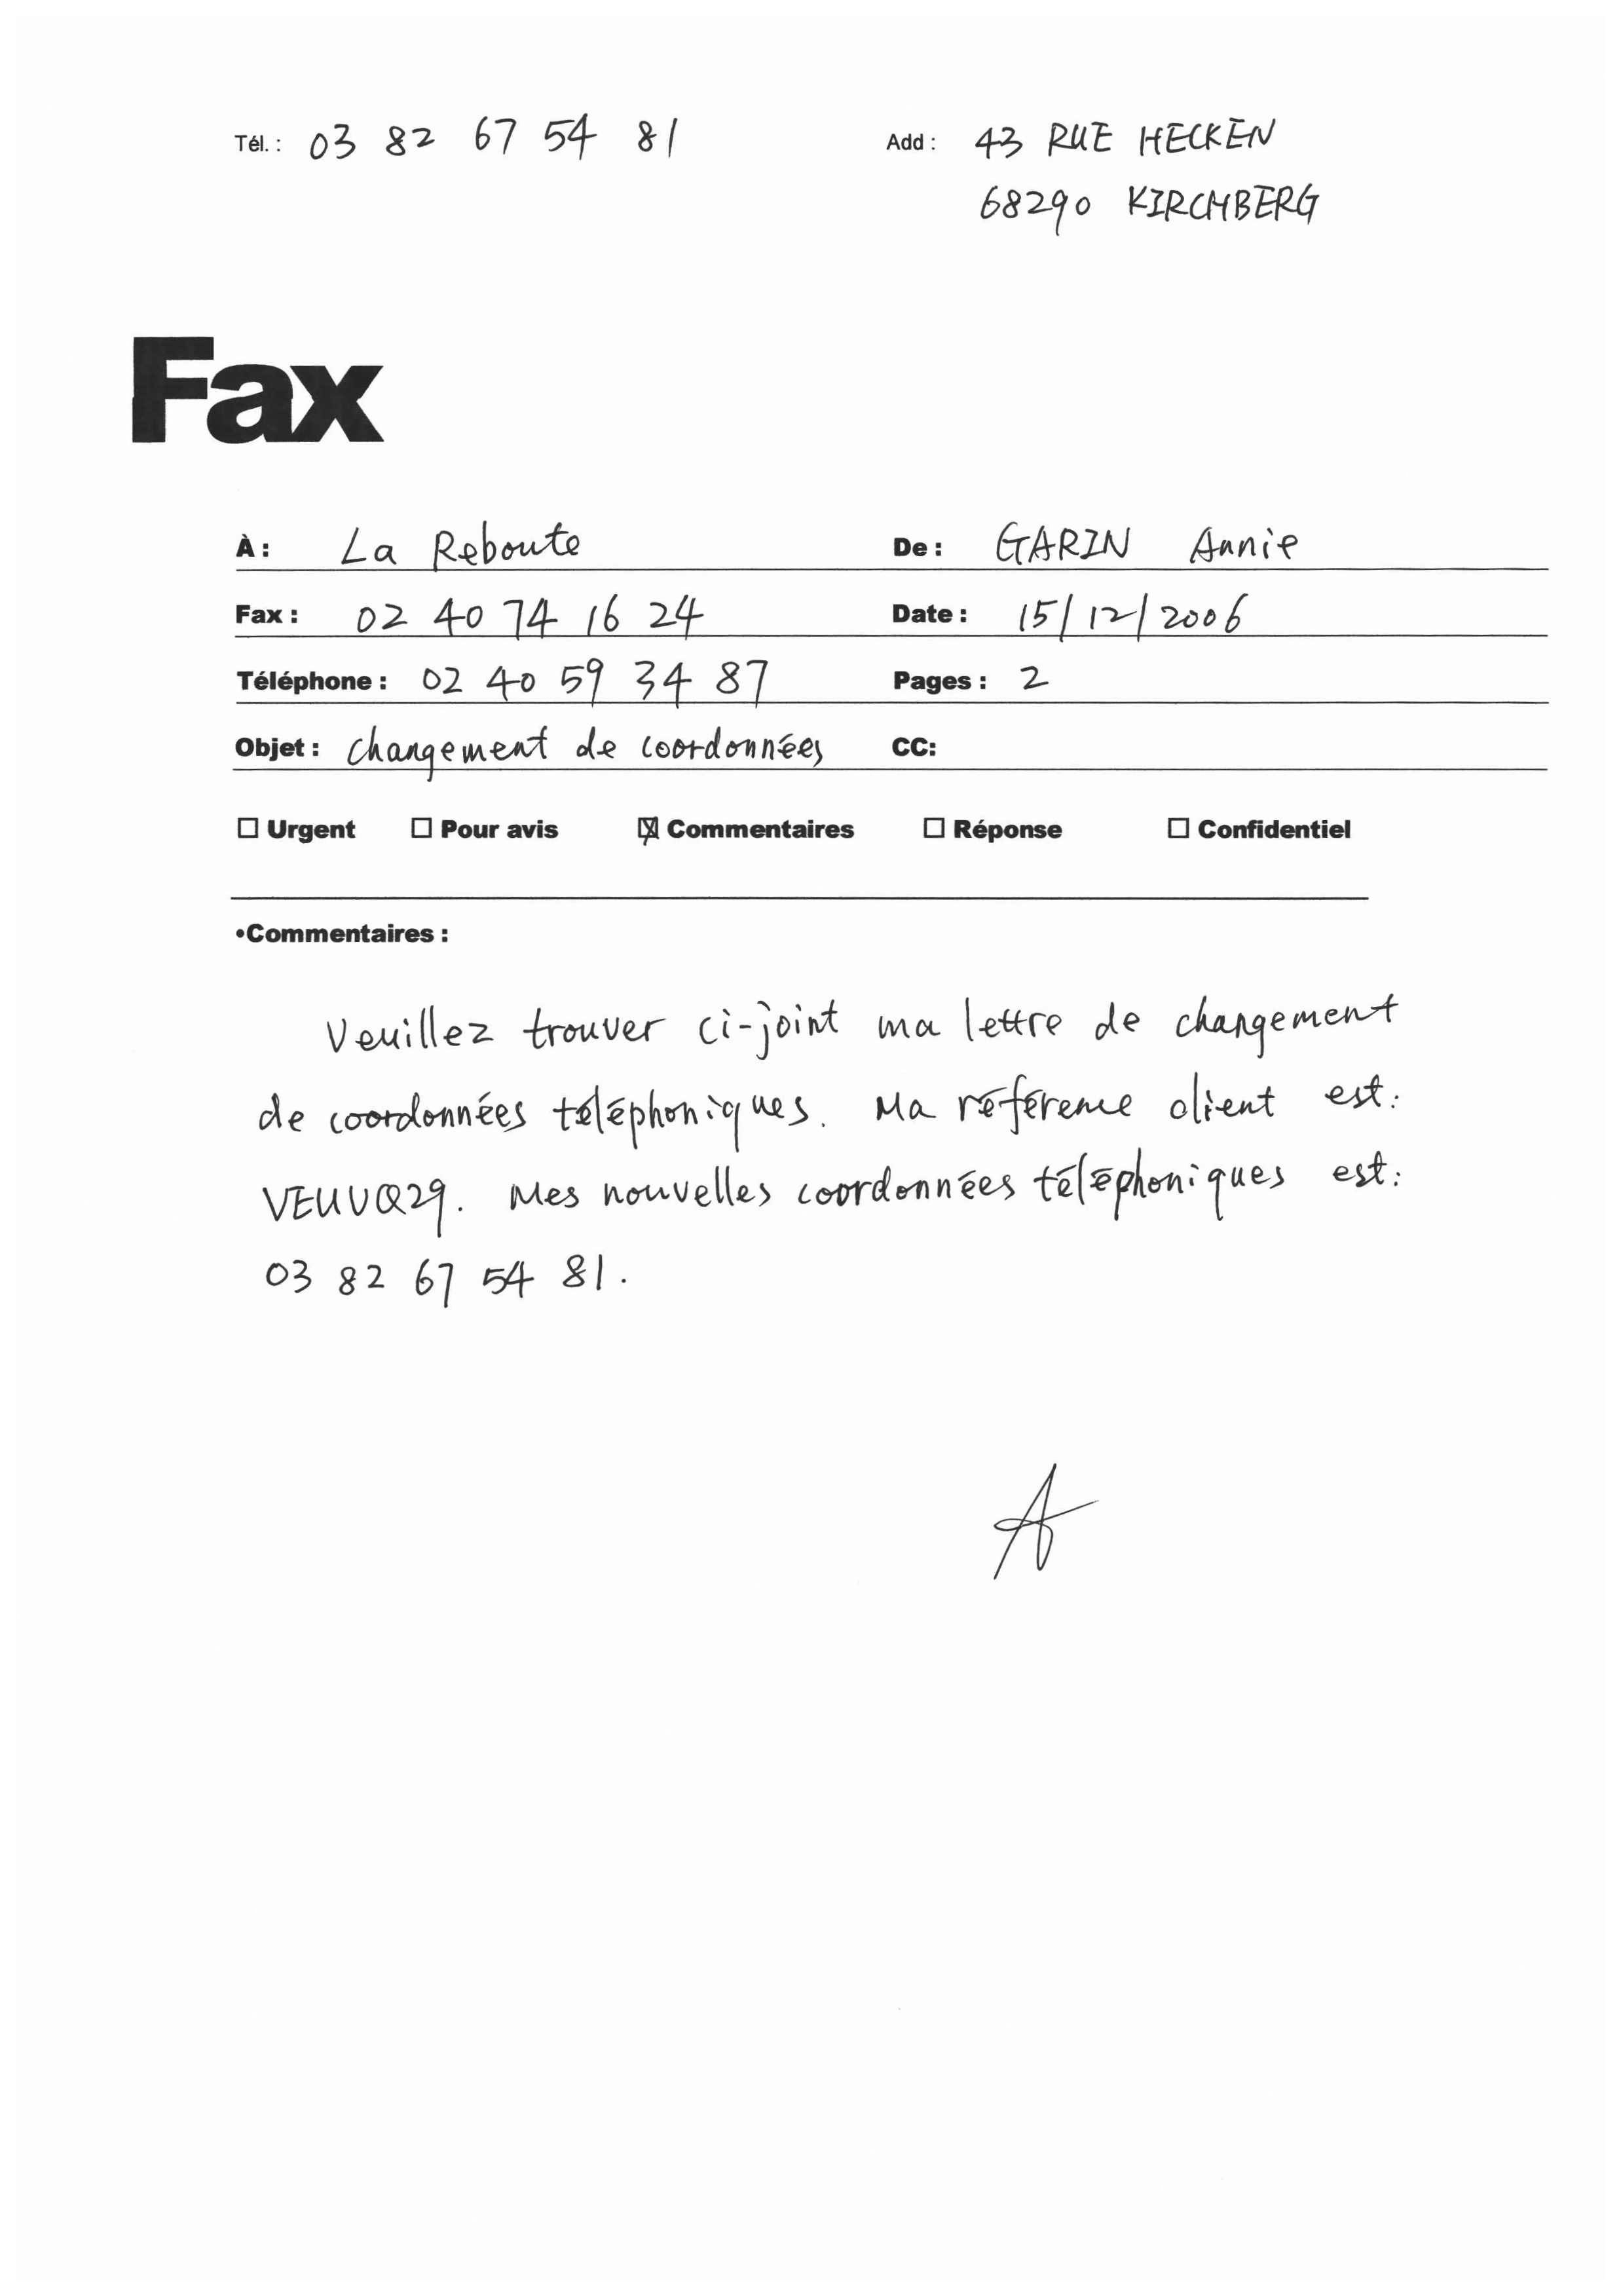 Tél. : 03 82 67 54 81 Add : 43 RUE HECKEN
68290 KIRCHBERG
Fax
À : La Reboute De : GARIN Annie
Fax : 02 40 74 16 24 Date : 15/12/2006
Téléphone : 02 40 59 34 87 Pages : 2
Objet : changement de coordonnées CC:
☐ Urgent ☐ Pour avis ☒ Commentaires ☐ Réponse ☐ Confidentiel
•Commentaires :
Veuillez trouver ci-joint ma lettre de changement
de coordonnées téléphoniques. Ma référence client est :
VEUVQ29. Mes nouvelles coordonnées téléphoniques est :
03 82 67 54 81.
A